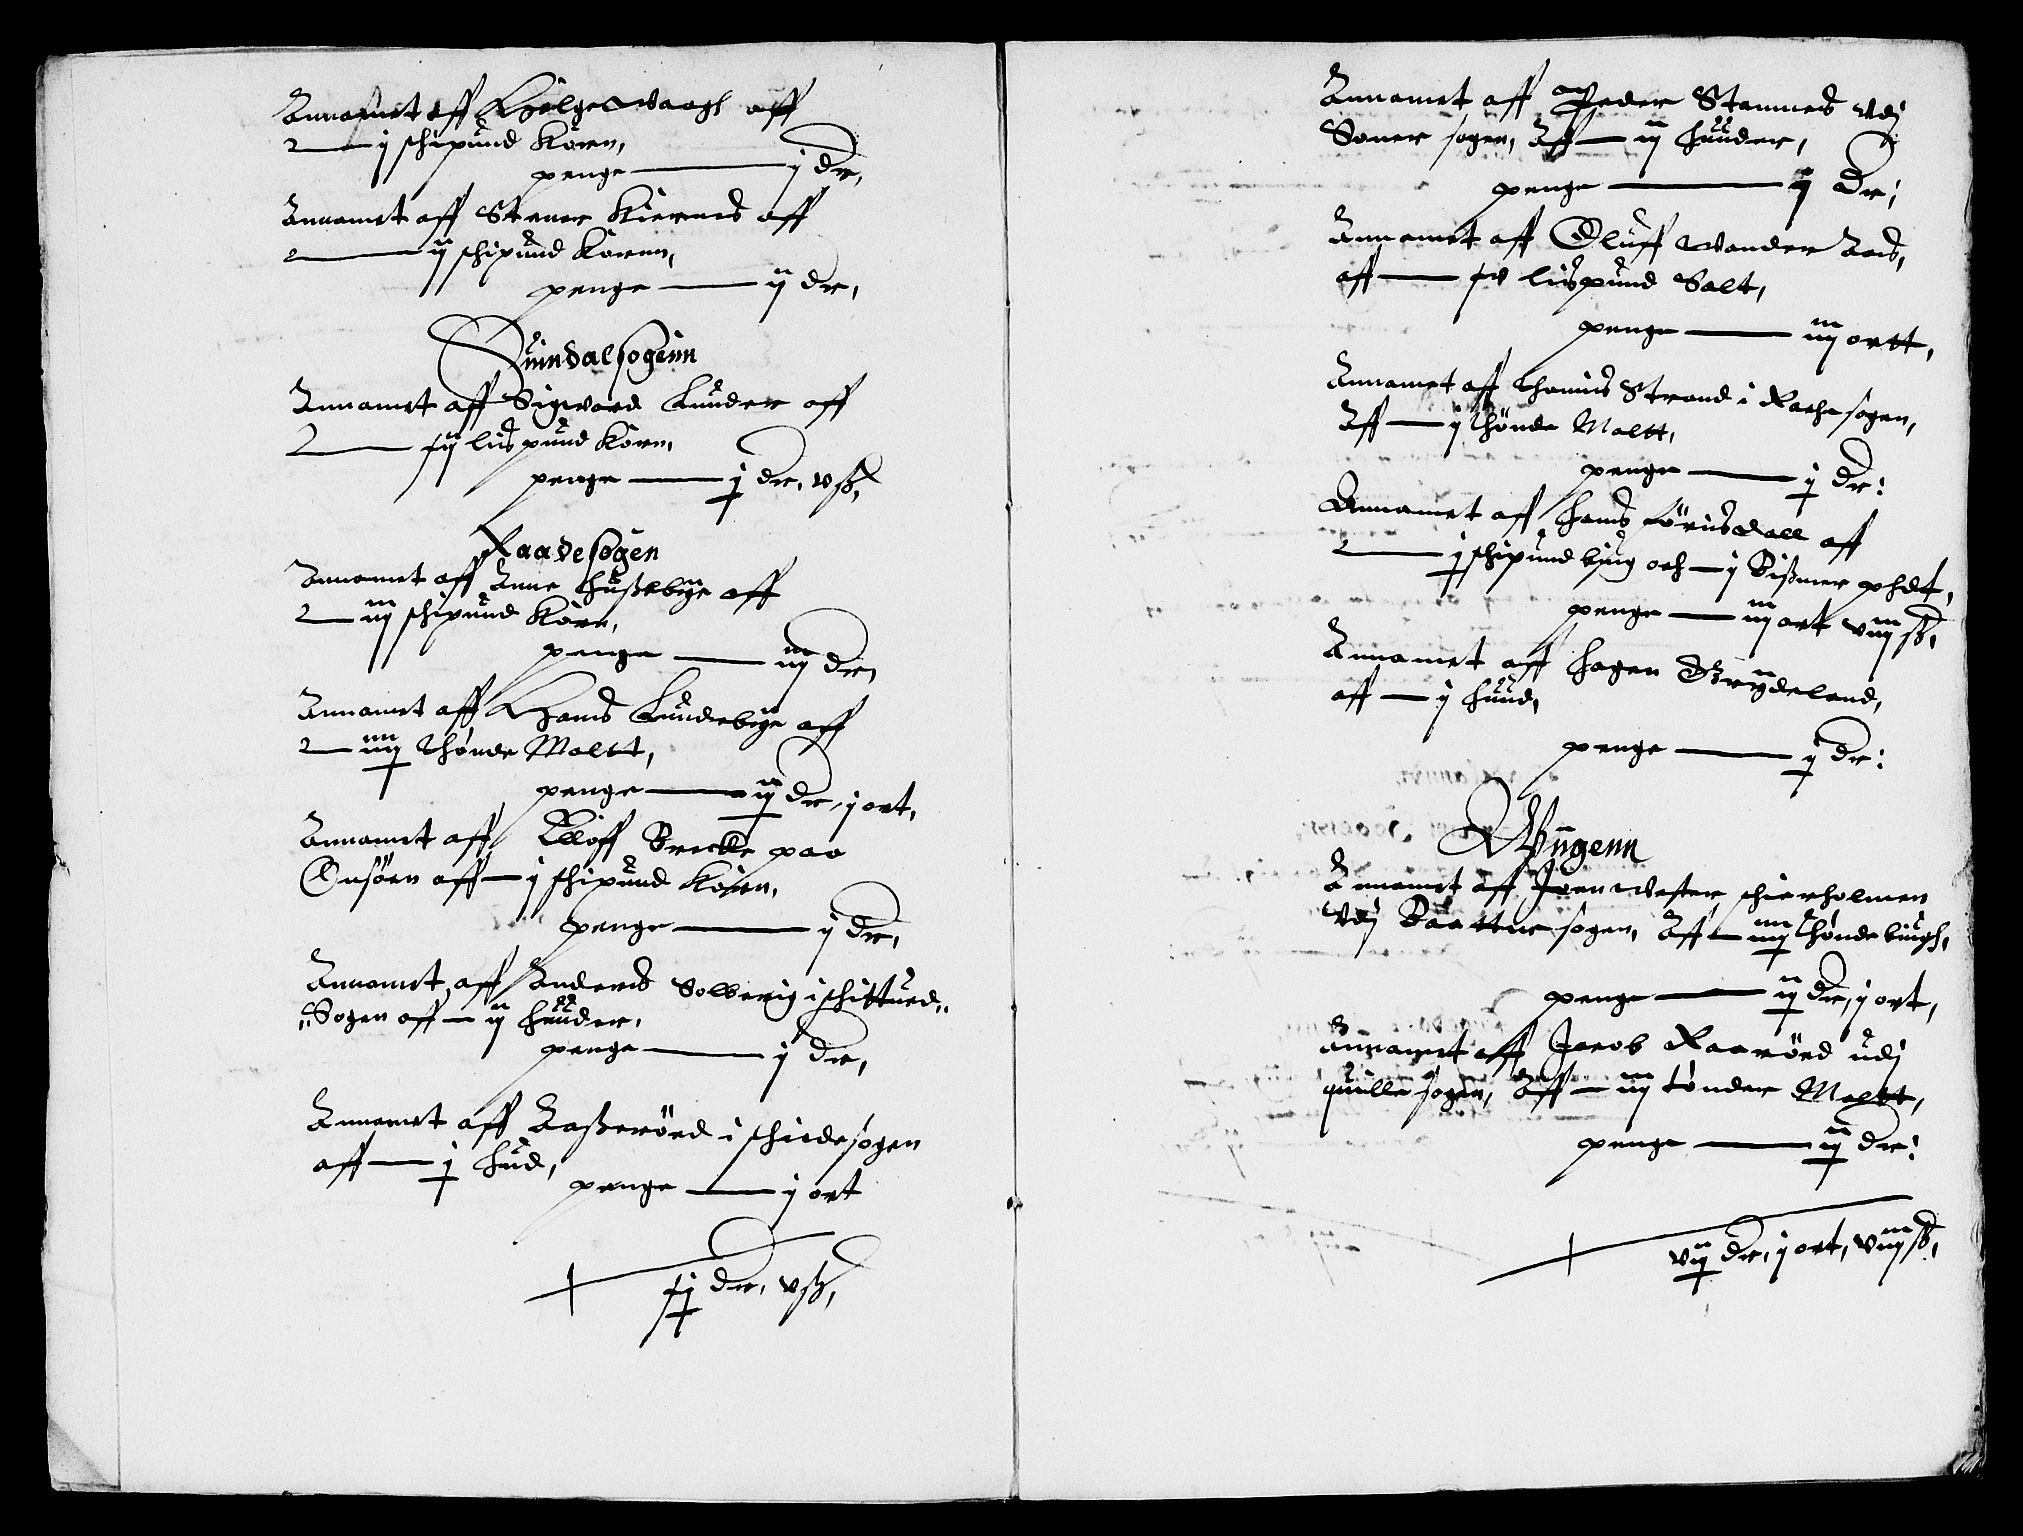 Annamet aff Helge Waagh aff
2 — j schipund Korn,
penge — j dr,
Annamet aff Stener Kiernes aff
2 — ij schipund Kornn,
penge — ij dr,
Quindalsogenn
Annamet aff Sigvard Lunder aff
2 — xij lispund Korn,
penge — j dr, v ß,
Raadesogen
Annamet aff Anne Hußebye aff
2 — iij schipund Korn,
penge — iij dr,
Annamet aff Hans Lundebye aff
2 — iiij thønde Maltt,
penge — iij dr, j ort,
Annamet aff Elloff Breckke paa
Onsöen aff — j schipund Korn,
penge — j dr,
Annamet aff Anders Solberig i schittued„
„Sogen aff — ij huuder,
penge — j dr,
Annamet aff Aaßerörd i schiedesogen
aff — j hud,
penge — j ort
xij dr, v ß,
Annamet aff Peder Stamnes vdj
Soner sogen, Aff — ij huuder,
penge — j dr,
Annamet aff Oluff Wander Aas,
aff — xv lispund Salt,
penge — iij ortt,
Annamet aff thomis Strand i Rachesogen,
Aff — j thönde Maltt,
penge — j dr:
Annamet aff Hans Förisdall aff
2 — j schipund byg och — j Bißmer phdt,
penge — iij ort viij ß,
Annamet aff Hagen Grydeland,
aff — j huud,
penge — j dr:
Wiigenn
Annamet aff Iven Wester schierholmen
Vdj Baattne sogen, Aff — iiij thønde biugh,
penge — ij dr, j ort,
Annamet aff Jacob Raarörd udj
quille sogen, Aff — iij tønder Maltt,
penge — ij dr:
vij dr, j ort, viij ß,